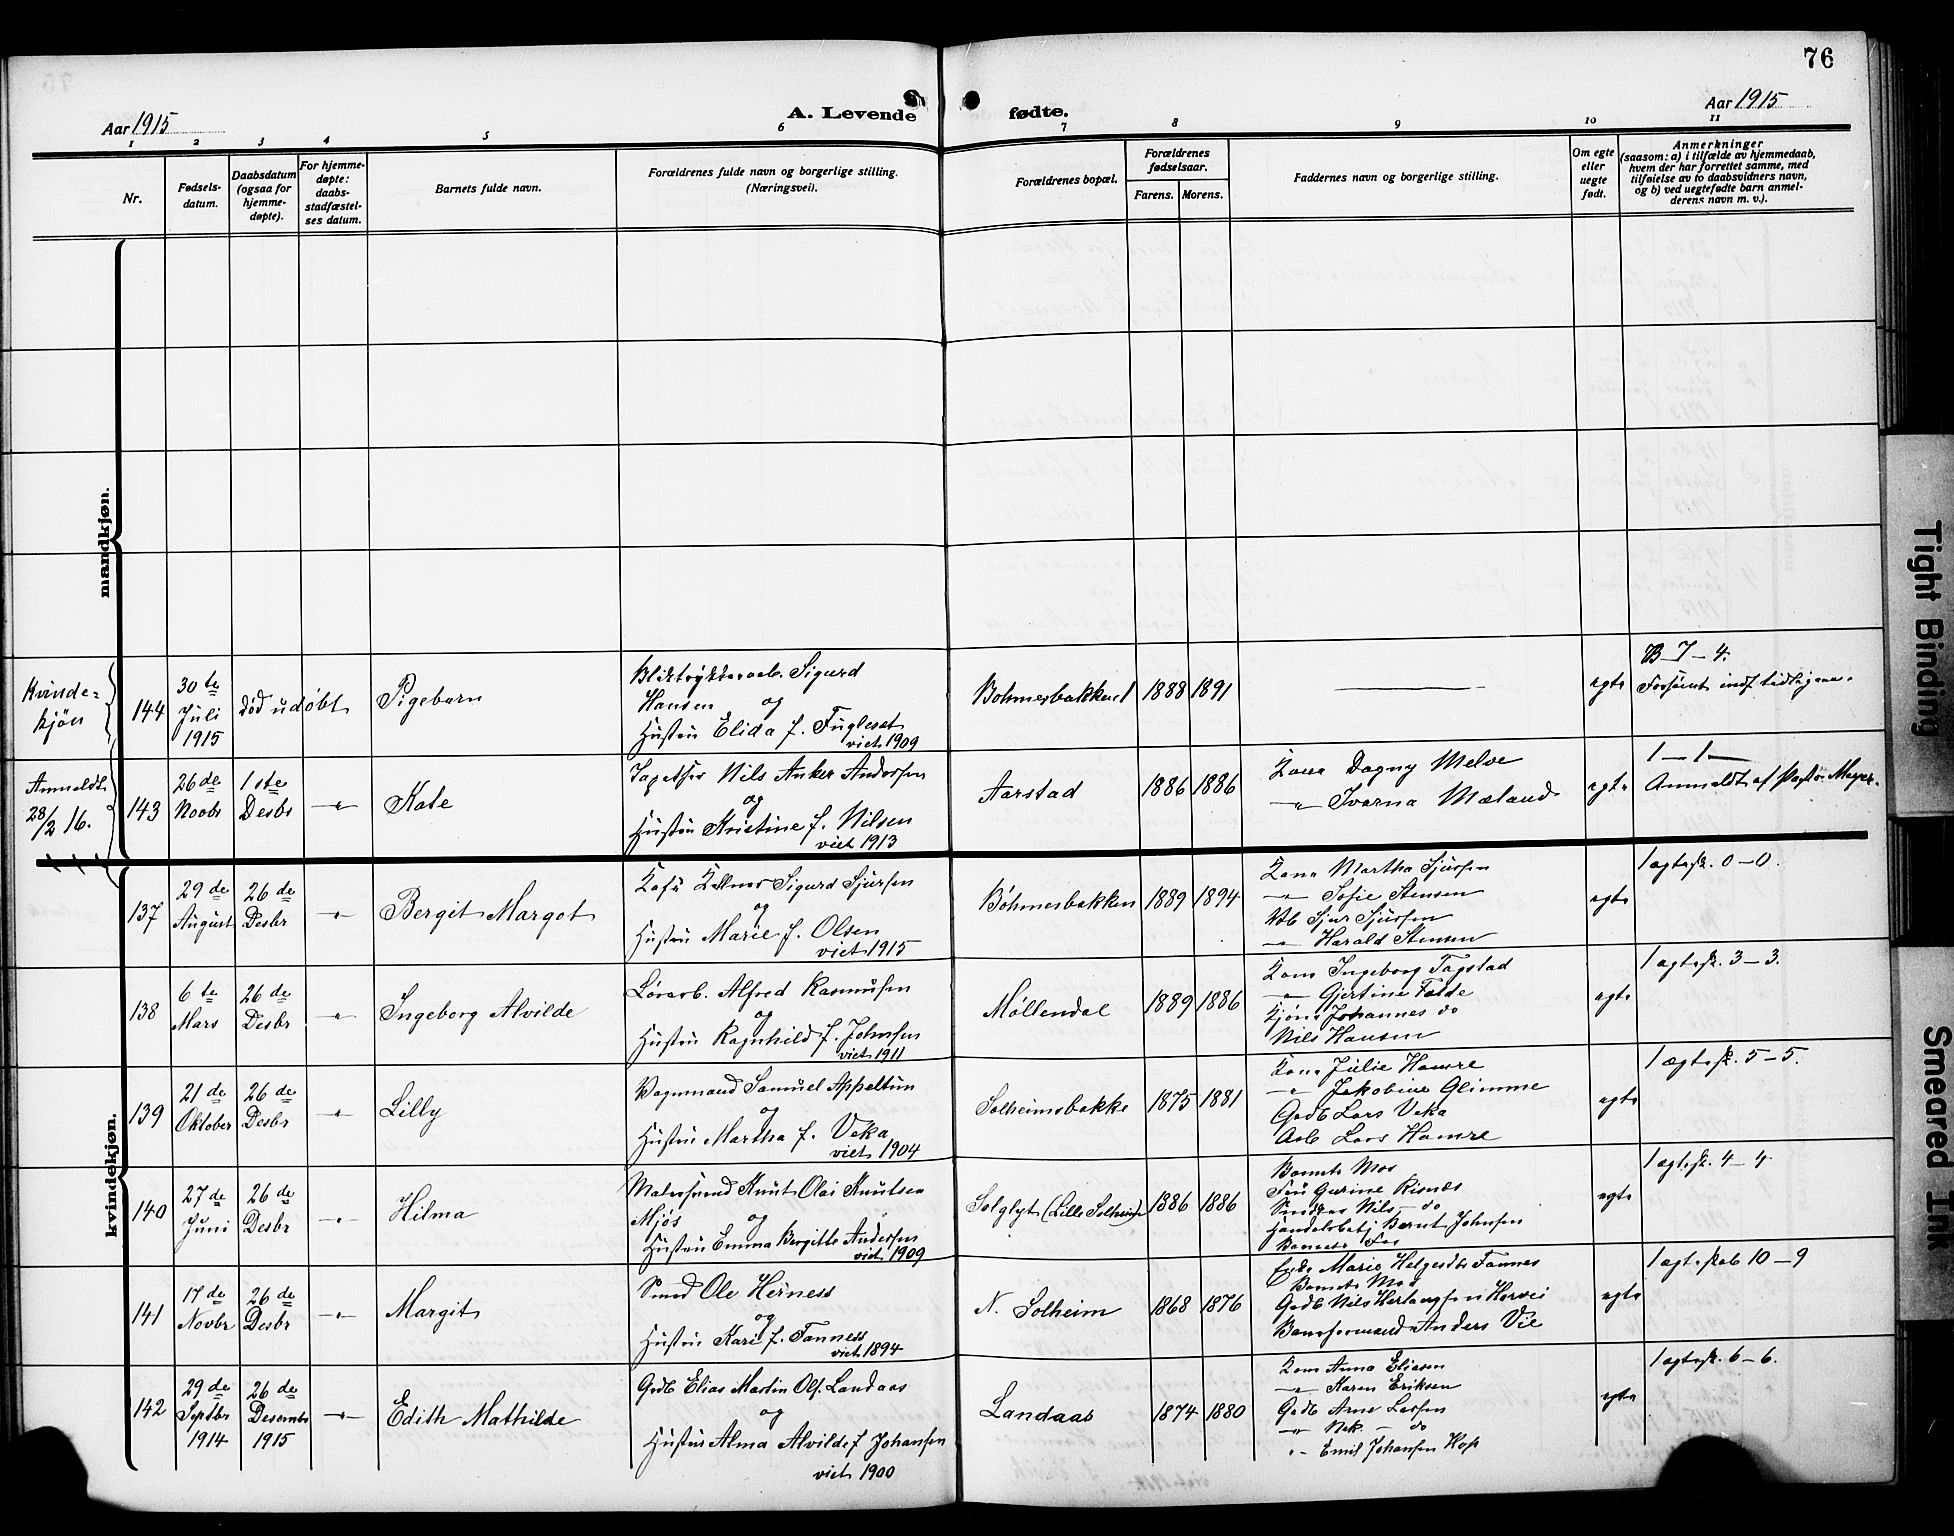 76
Aar 1915
A. Levende
fødte.
Aar 1915
1 2 3 4 5 6 7 8 9 10 11
Nr.
Fødsels-
datum.
Daabsdatum
(ogsaa for
hjemme-
døpte).
For hjemme-
døpte:
daabs-
stadfæstel-
ses datum.
Barnets fulde navn.
Forældrenes fulde navn og borgerlige stilling.
(Næringsvei).
Forældrenes bopæl.
Forældrenes
fødselsaar.
Farens. Morens.
Faddernes navn og borgerlige stilling.
Om egte
eller
uegte
født.
Anmerkninger
(saasom: a) i tilfælde av hjemmedaab,
hvem der har forrettet samme, med
tilføielse av to daabsvidners navn,
og b) ved uegtefødte barn anmel-
derens navn m. v.).
mandkjøn.
Kvinde=
kjön
144
30 te
Juli
1915
död udöbt
Pigebarn
Sigurd
Hansen og
Hustru Elida f. Fugleset
viet 1909
Bohmerbakken 1
1888 1891
egte
B-7-4.
Anmeldt
28/2 16.
143
26 de
Novbr
1 ste
Desbr
-"-
Kate
Nils Anker Andersen
og
Hustru Kristine f. Nilsen
viet 1913
Aarstad
1886 1886
Kone Dagny Melve
-"- Ivarna Mæland
egte
1-1-
Anmeldt af Pastor Meyer.
kvindekjøn.
137
29 de
August
26 de
Desbr
-"-
Bergit Margot
Sigurd Sjursen
og
Hustru Marie f. Olsen
viet 1915
Böhmerbakken
1889 1894
Kone Martha Sjursen
-"- Sofie Stensen
Sjur Sjursen
-"- Harald Stensen
egte
1 ægtesk. 0-0.
138
6 te
Mars
26 de
Desbr
-"-
Ingeborg Alvilde
Alfred Rasmusen
og
Hustru Ragnhild f. Johnsen
viet 1911
Möllendal
1889 1886
Kone Ingeborg Fagstad
-"- Gjertine Følde
Johannes do
Nils Hansen
egte
1 ægtesk. 3-3.
139
21 de
Oktober
26 de
Desbr
-"-
Lilly
Vognmand Samuel Appeltun
og
Hustru Martha f. Veka
viet 1904
Solheimsbakke
1875 1881
Kone Julie Hamre
-"- Jakobine Glimme
Gdb Lars Veka
Arb Lars Hamre
egte
1 ægtesk. 5-5.
140
27 de
Juni
26 de
Desbr
-"-
Hilma
Knut Olai Knutsen
Mjös og
Hustru Emma Bergitte Andersen
viet 1909
Solglyt (Lille Solheim)
1886 1886
Barnets Mor
Fru Gurine Risnæs
Nils do
Handelsbetj Bernt Johnsen
Barnets Far
egte
1 ægtesk. 4-4
141
17 de
Novbr
26 de
Desbr
-"-
Margit
Smed Ole Herness
og
Hustru Kari f. Fonness
viet 1894
N. Solheim
1868 1876
Marie Helgesdtr Fonnes
Barnets Mod
Gdb Nils
Baneformand Anders Vie
egte
1 egteskab 10-9
142
29 de
Septbr
1914
26 de
Desembr
1915
-"-
Edith Mathilde
Gdb Elias Martin Ols. Landaas
og
Hustru Alma Alvilde f Johansen
viet 1900
Landaas
1874 1880
Kone Anna Eliasen
-"- Karen Eriksen
Gdb Arne Larsen
-"- Nek. - do
-"- Emil Johansen Hop
egte
1 ægtesk. 6-6.
Tight Binding
Smeared Ink